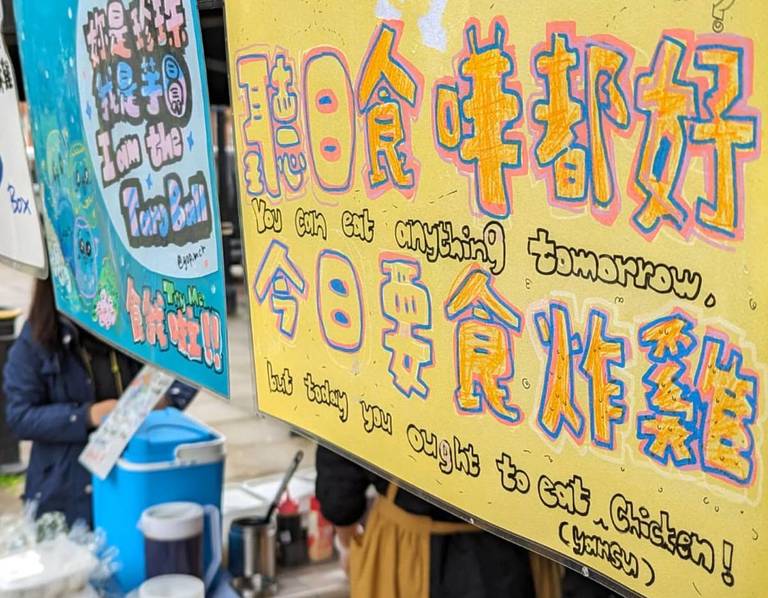 都是珍珠
我是芋圓
I am the
Taro Ball
Try Me
食我啦!!
Box
聽日食咩都好
You can eat anything tomorrow,
今日要食炸雞
but today you ought to eat Chicken!
(yansu)